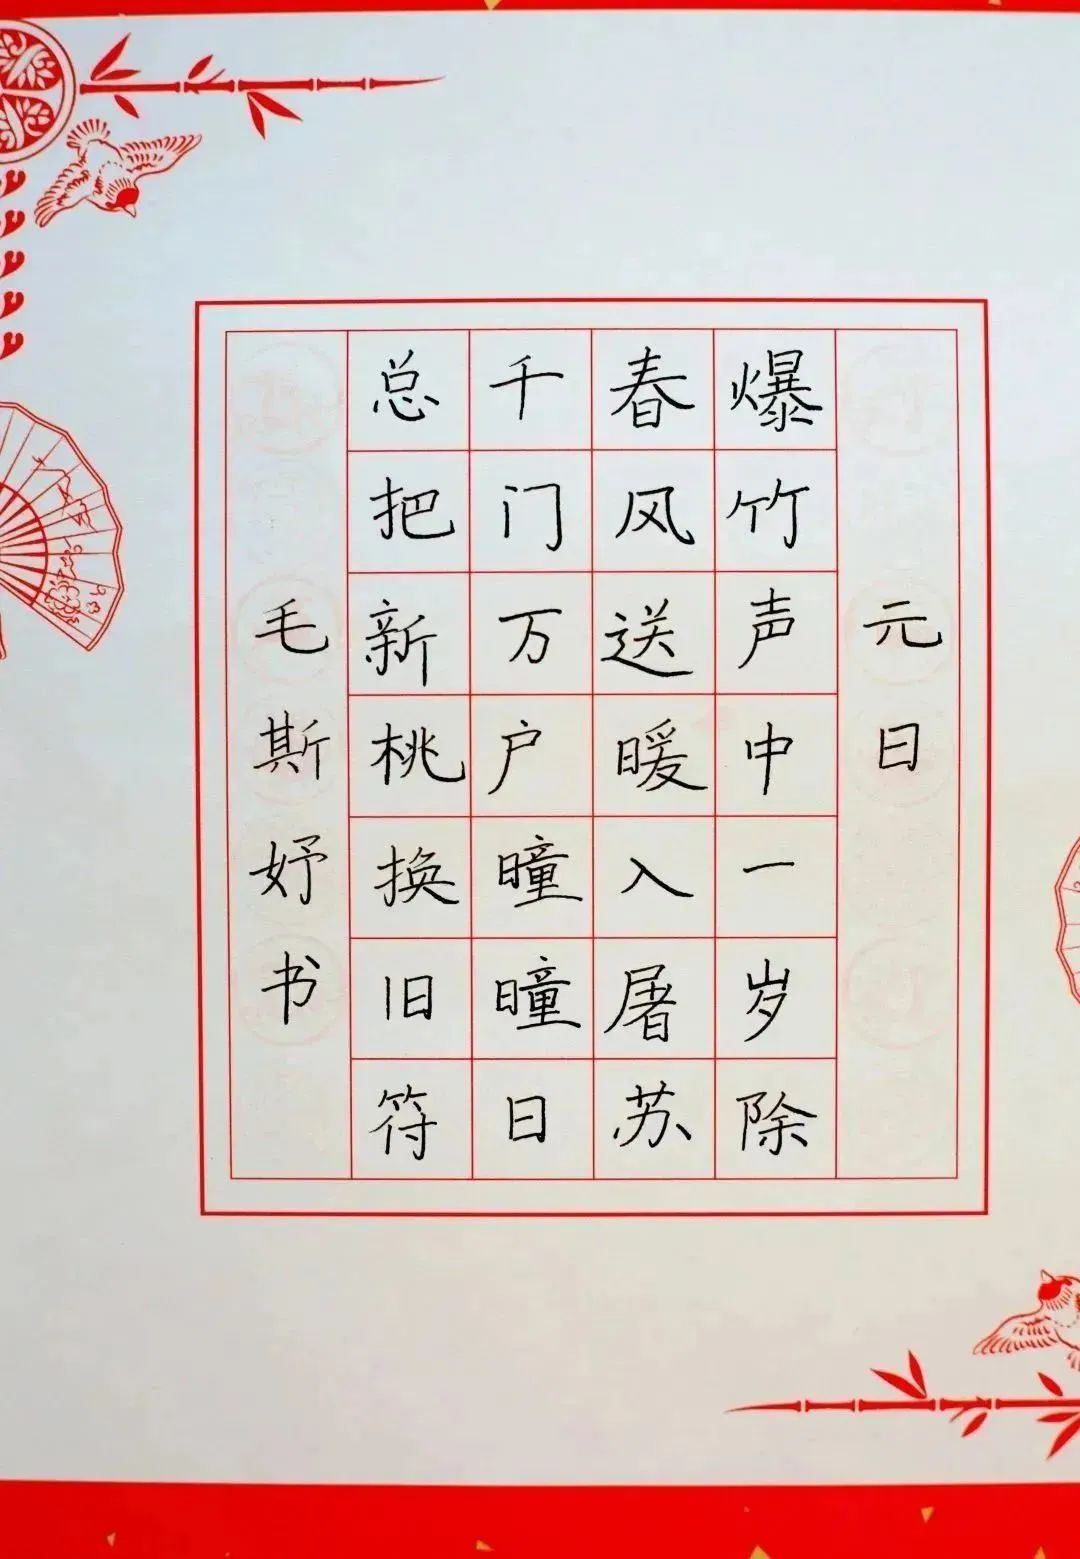 元日
爆竹声中一岁除
春风送暖入屠苏
千门万户曈曈日
总把新桃换旧符
毛斯妤书